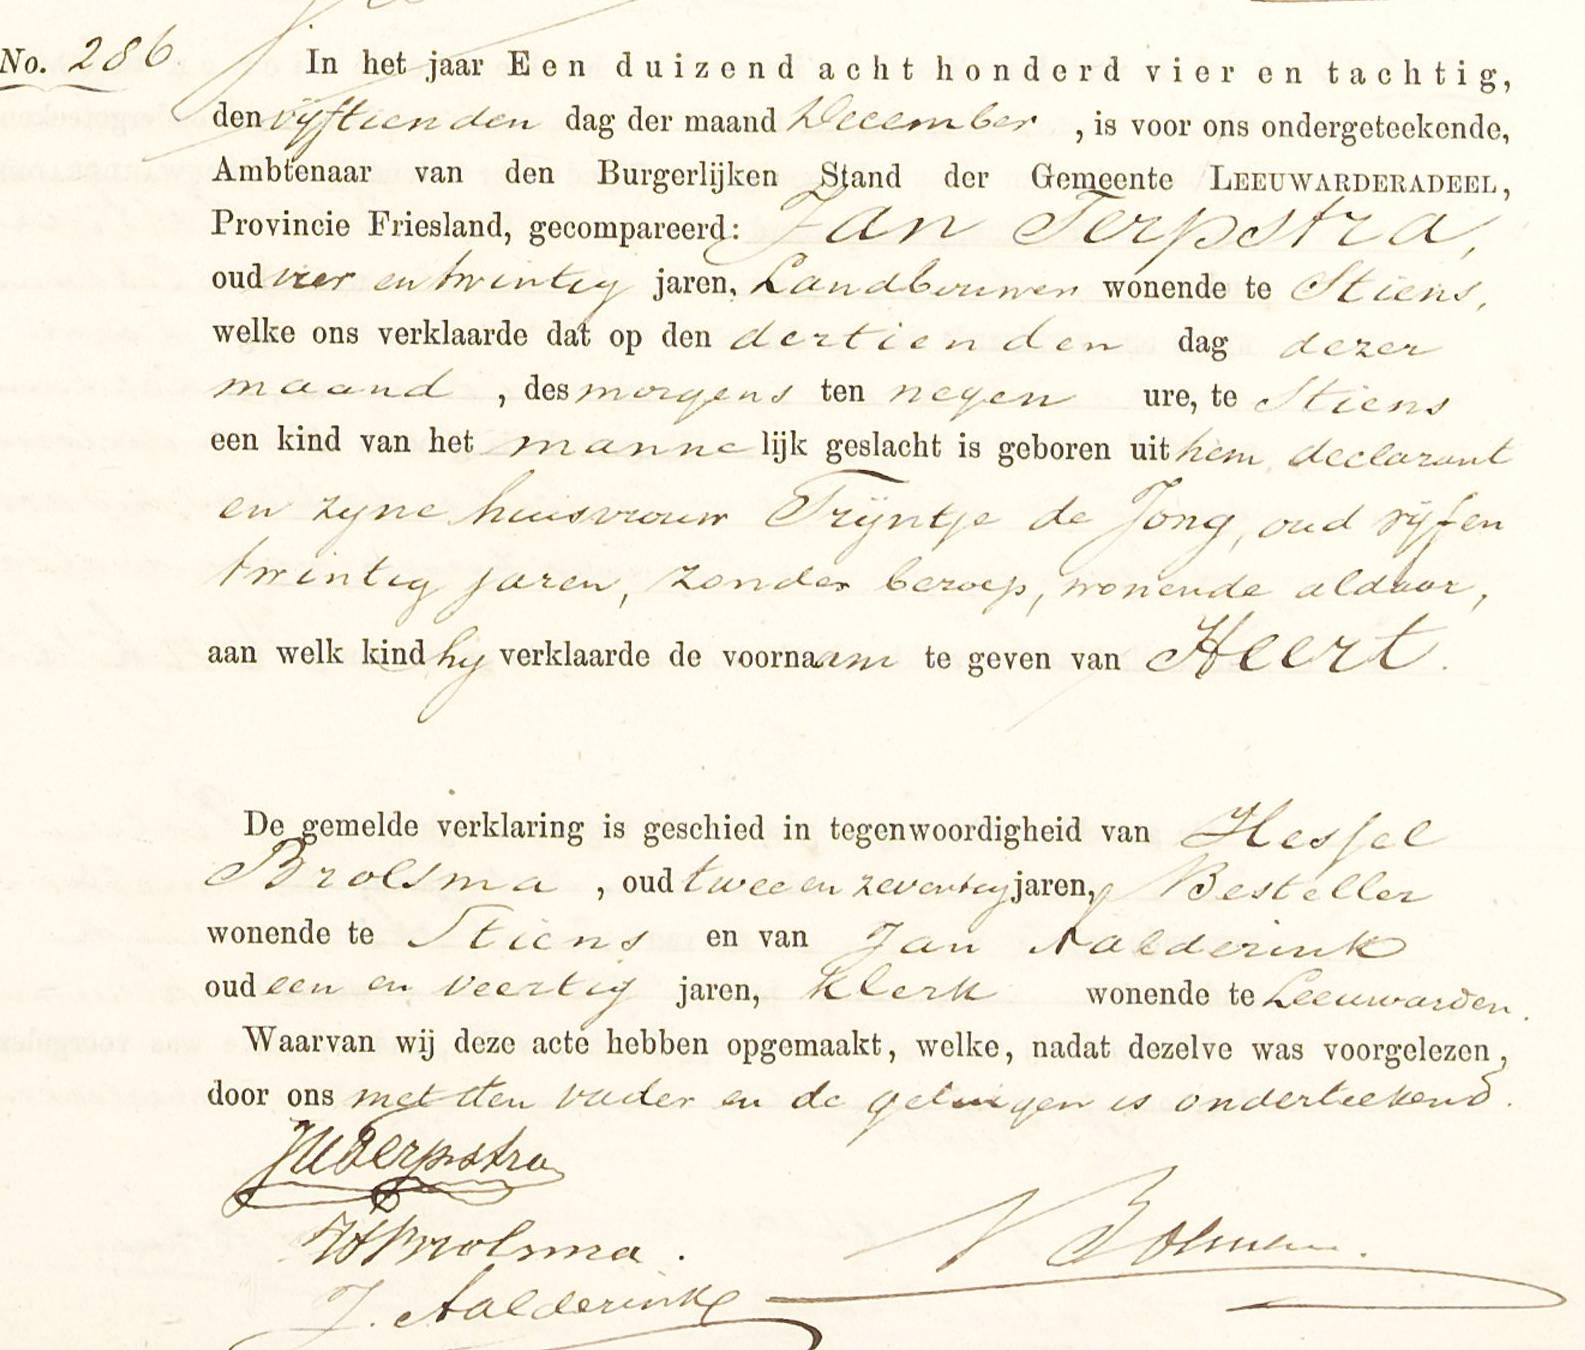 No. 286. In het jaar Een duizend acht honderd vier en tachtig,
den vijftienden dag der maand December , is voor ons ondergeteekende,
Ambtenaar van den Burgerlijken Stand der Gemeente LEEUWARDERADEEL,
Provincie Friesland, gecompareerd: Jan Terpstra,
oud vier en twintig jaren, Landbouwer wonende te Stiens,
welke ons verklaarde dat op den dertienden dag dezer
maand , des morgens ten negen ure, te Stiens
een kind van het mannelijk geslacht is geboren uit hem declarant
en zyne huisvrouw Trijntje de Jong, oud vijf en
twintig jaren, zonder beroep, wonende aldaar,
aan welk kind hy verklaarde de voornaam te geven van Heert.
De gemelde verklaring is geschied in tegenwoordigheid van Hessel
Brolsma , oud twee en zeventig jaren, Besteller
wonende te Stiens en van Jan Aalderink
oud een en veertig jaren, klerk wonende te Leeuwarden.
Waarvan wij deze acte hebben opgemaakt, welke, nadat dezelve was voorgelezen,
door ons met den vader en de getuigen is onderteekend.
Terpstra
HBrolsma.
J. Aalderink